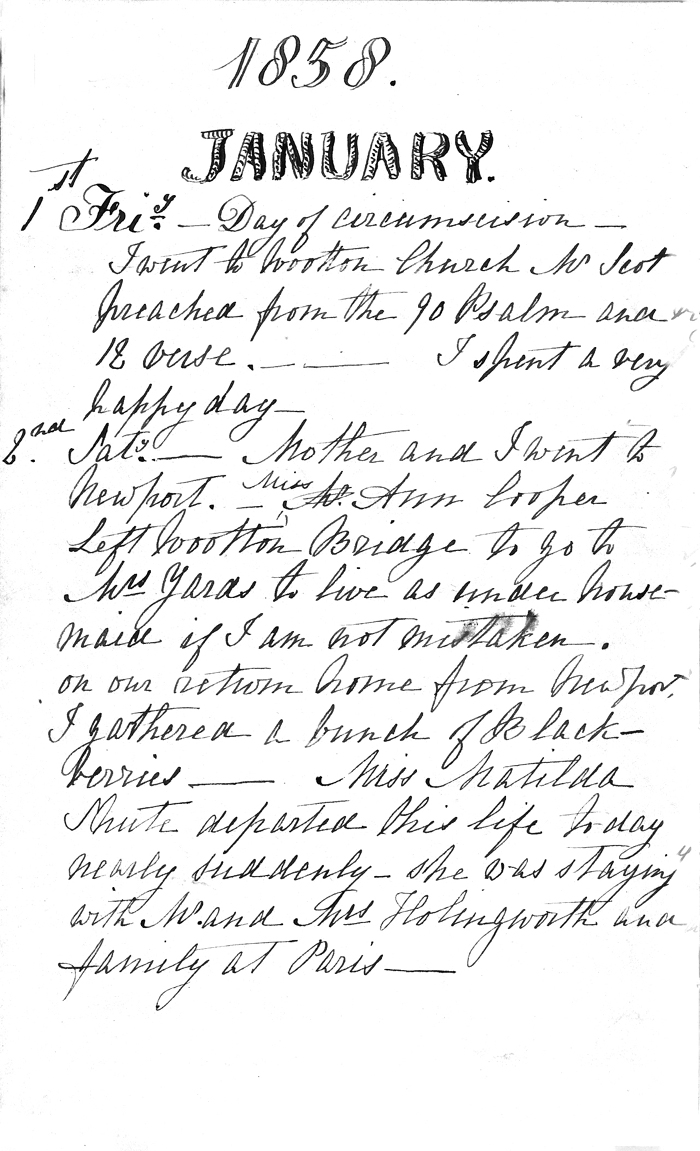 1858.
JANUARY.
1st Friy. — Day of circumscision —
I went to Wootton Church Mr Scot
preached from the 90 Psalm and
12 verse. — — I spent a very
happy day —
2.nd Saty. — Mother and I went to
Newport. — Miss Ann Cooper
Left Wootton Bridge to go to
Mrs Yards to live as under house-
maid if I am not mistaken.
on our return home from Newpor.
I gathered a bunch of Black-
berries — Miss Matilda
departed this life today
nearly suddenly — she was staying
with Mr. and Mrs Holingworth and
family at Paris —